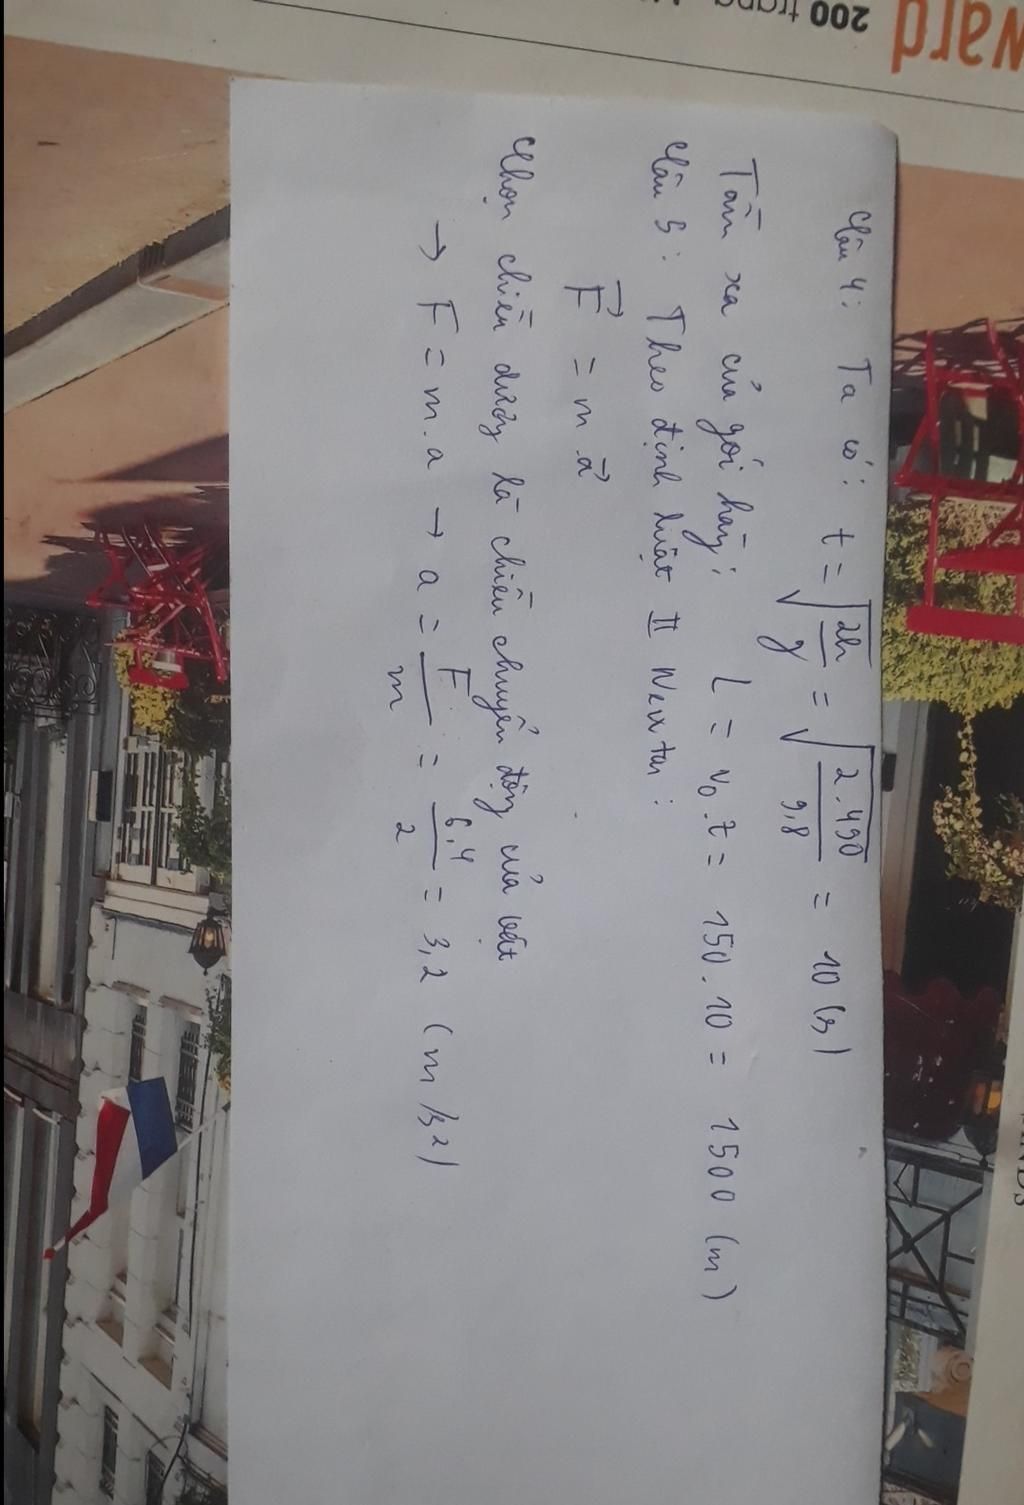 200 trang
Câu 4: Ta có: t = √(2h/g) = √(2.490/9,8) = 10 (s)
Tầm xa của gói hàng: L = v₀.t = 150.10 = 1500 (m)
Câu 5: Theo định luật II Newton:
F⃗ = m.a⃗
Chọn chiều dương là chiều chuyển động của vật
→ F = m.a → a = F/m = 6,4/2 = 3,2 (m/s²)